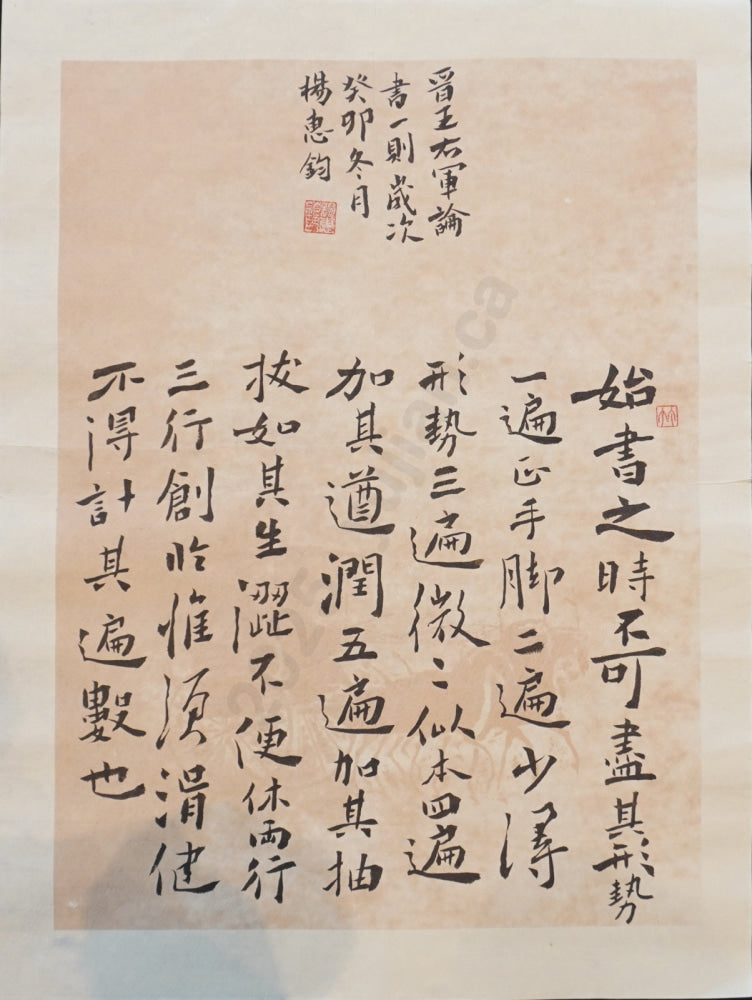 始書之時不可盡其形勢
一遍正手脚二遍少得
形勢三遍微〻似本四遍
加其遒潤五遍加其抽
拔如其生澀不便休兩行
三行創臨惟須滑健
不得計其遍數也
晉王右軍論
書一則歲次
癸卯冬月
楊惠鈞